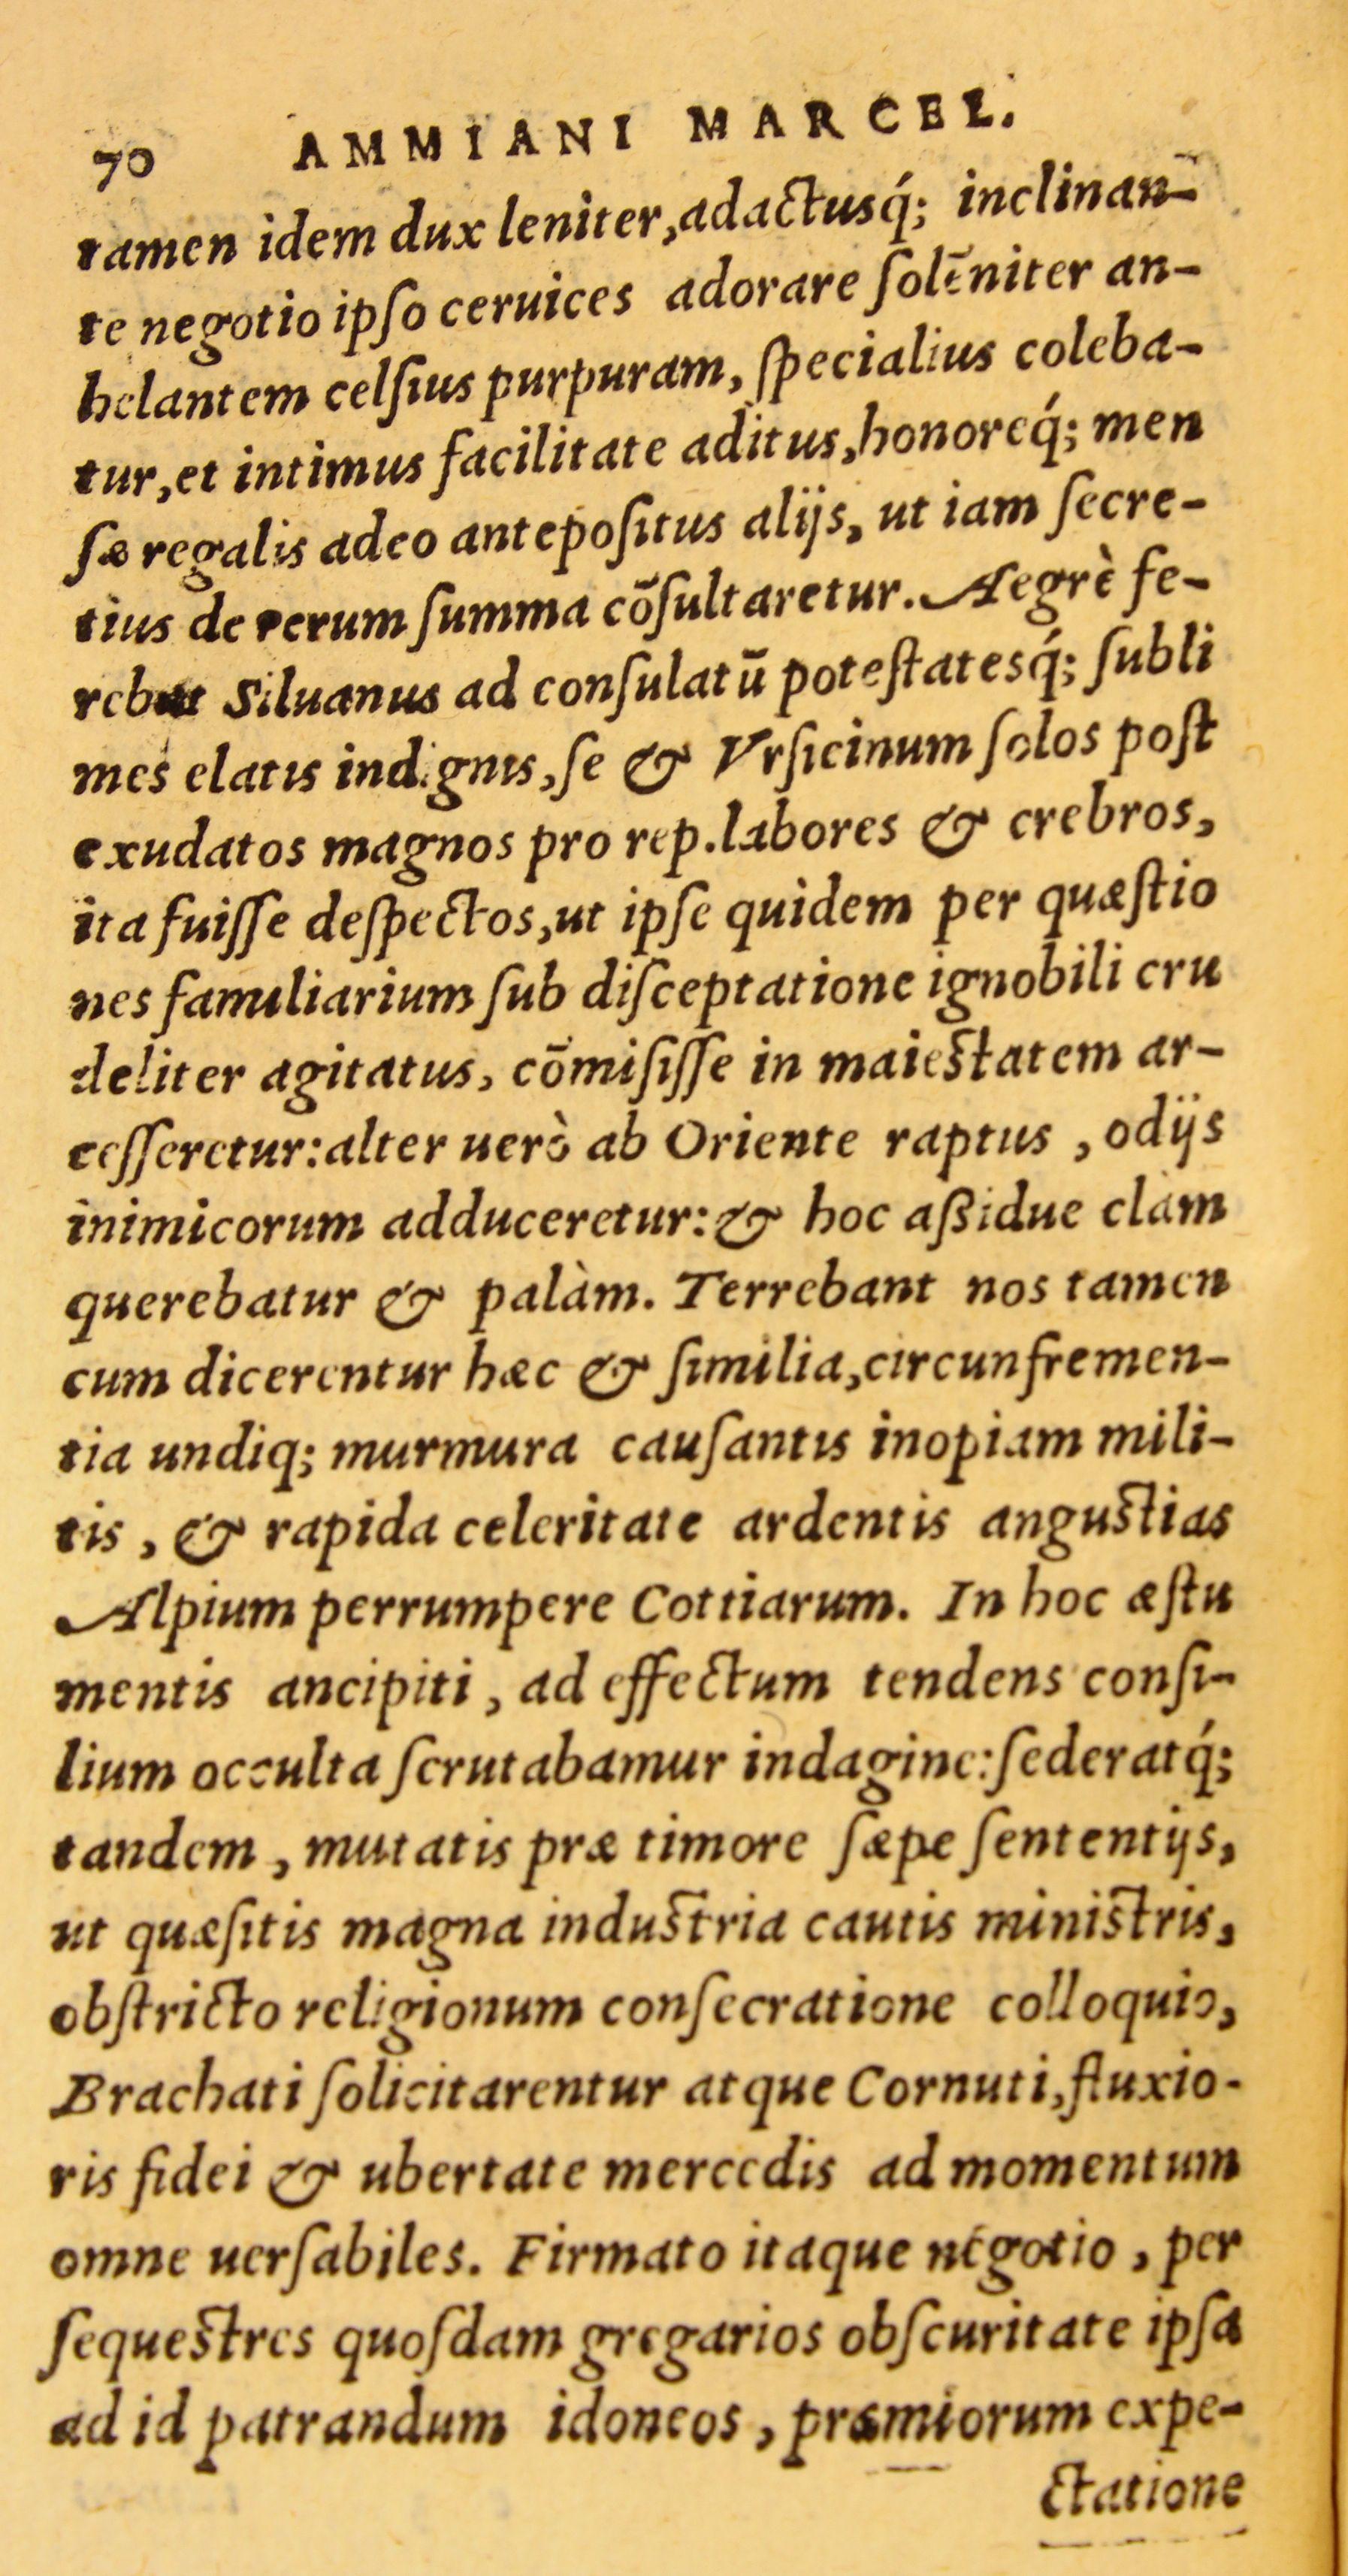 70 AMMIANI MARCEL.
tamen idem dux leniter, adactusq́; inclinan-
te negotio ipſo ceruices adorare ſolẽniter an-
helantem celſius purpuram, ſpecialius coleba-
tur, et intimus facilitate aditus, honoreq́; men
ſæ regalis adeo antepoſitus alijs, ut iam ſecre-
tius de rerum ſumma cõſultaretur. Aegrè fe-
rebat Siluanus ad conſulatũ poteſtatesq́; ſubli
mes elatis indignis, ſe & Vrſicinum ſolos poſt
exudatos magnos pro rep. labores & crebros,
ita fuiſſe deſpectos, ut ipſe quidem per quæſtio
nes familiarium ſub diſceptatione ignobili cru
deliter agitatus, cõmiſiſſe in maieſtatem ar-
ceſſeretur: alter uerò ab Oriente raptus, odijs
inimicorum adduceretur: & hoc aßidue clàm
querebatur & palàm. Terrebant nos tamen
cum dicerentur hæc & ſimilia, circunfremen-
tia undiq; murmura cauſantis inopiam mili-
tis, & rapida celeritate ardentis anguſtias
Alpium perrumpere Cottiarum. In hoc æſtu
mentis ancipiti, ad effectum tendens conſi-
lium occulta ſcrutabamur indagine: ſederatq́;
tandem, mutatis præ timore ſæpe ſententijs,
ut quæſitis magna induſtria cautis miniſtris,
obſtricto religionum conſecratione colloquio,
Brachati ſolicitarentur atque Cornuti, fluxio-
ris fidei & ubertate mercedis ad momentum
omne uerſabiles. Firmato itaque negotio, per
ſequeſtres quoſdam gregarios obſcuritate ipſa
ad id patrandum idoneos, præmiorum expe-
ctatione